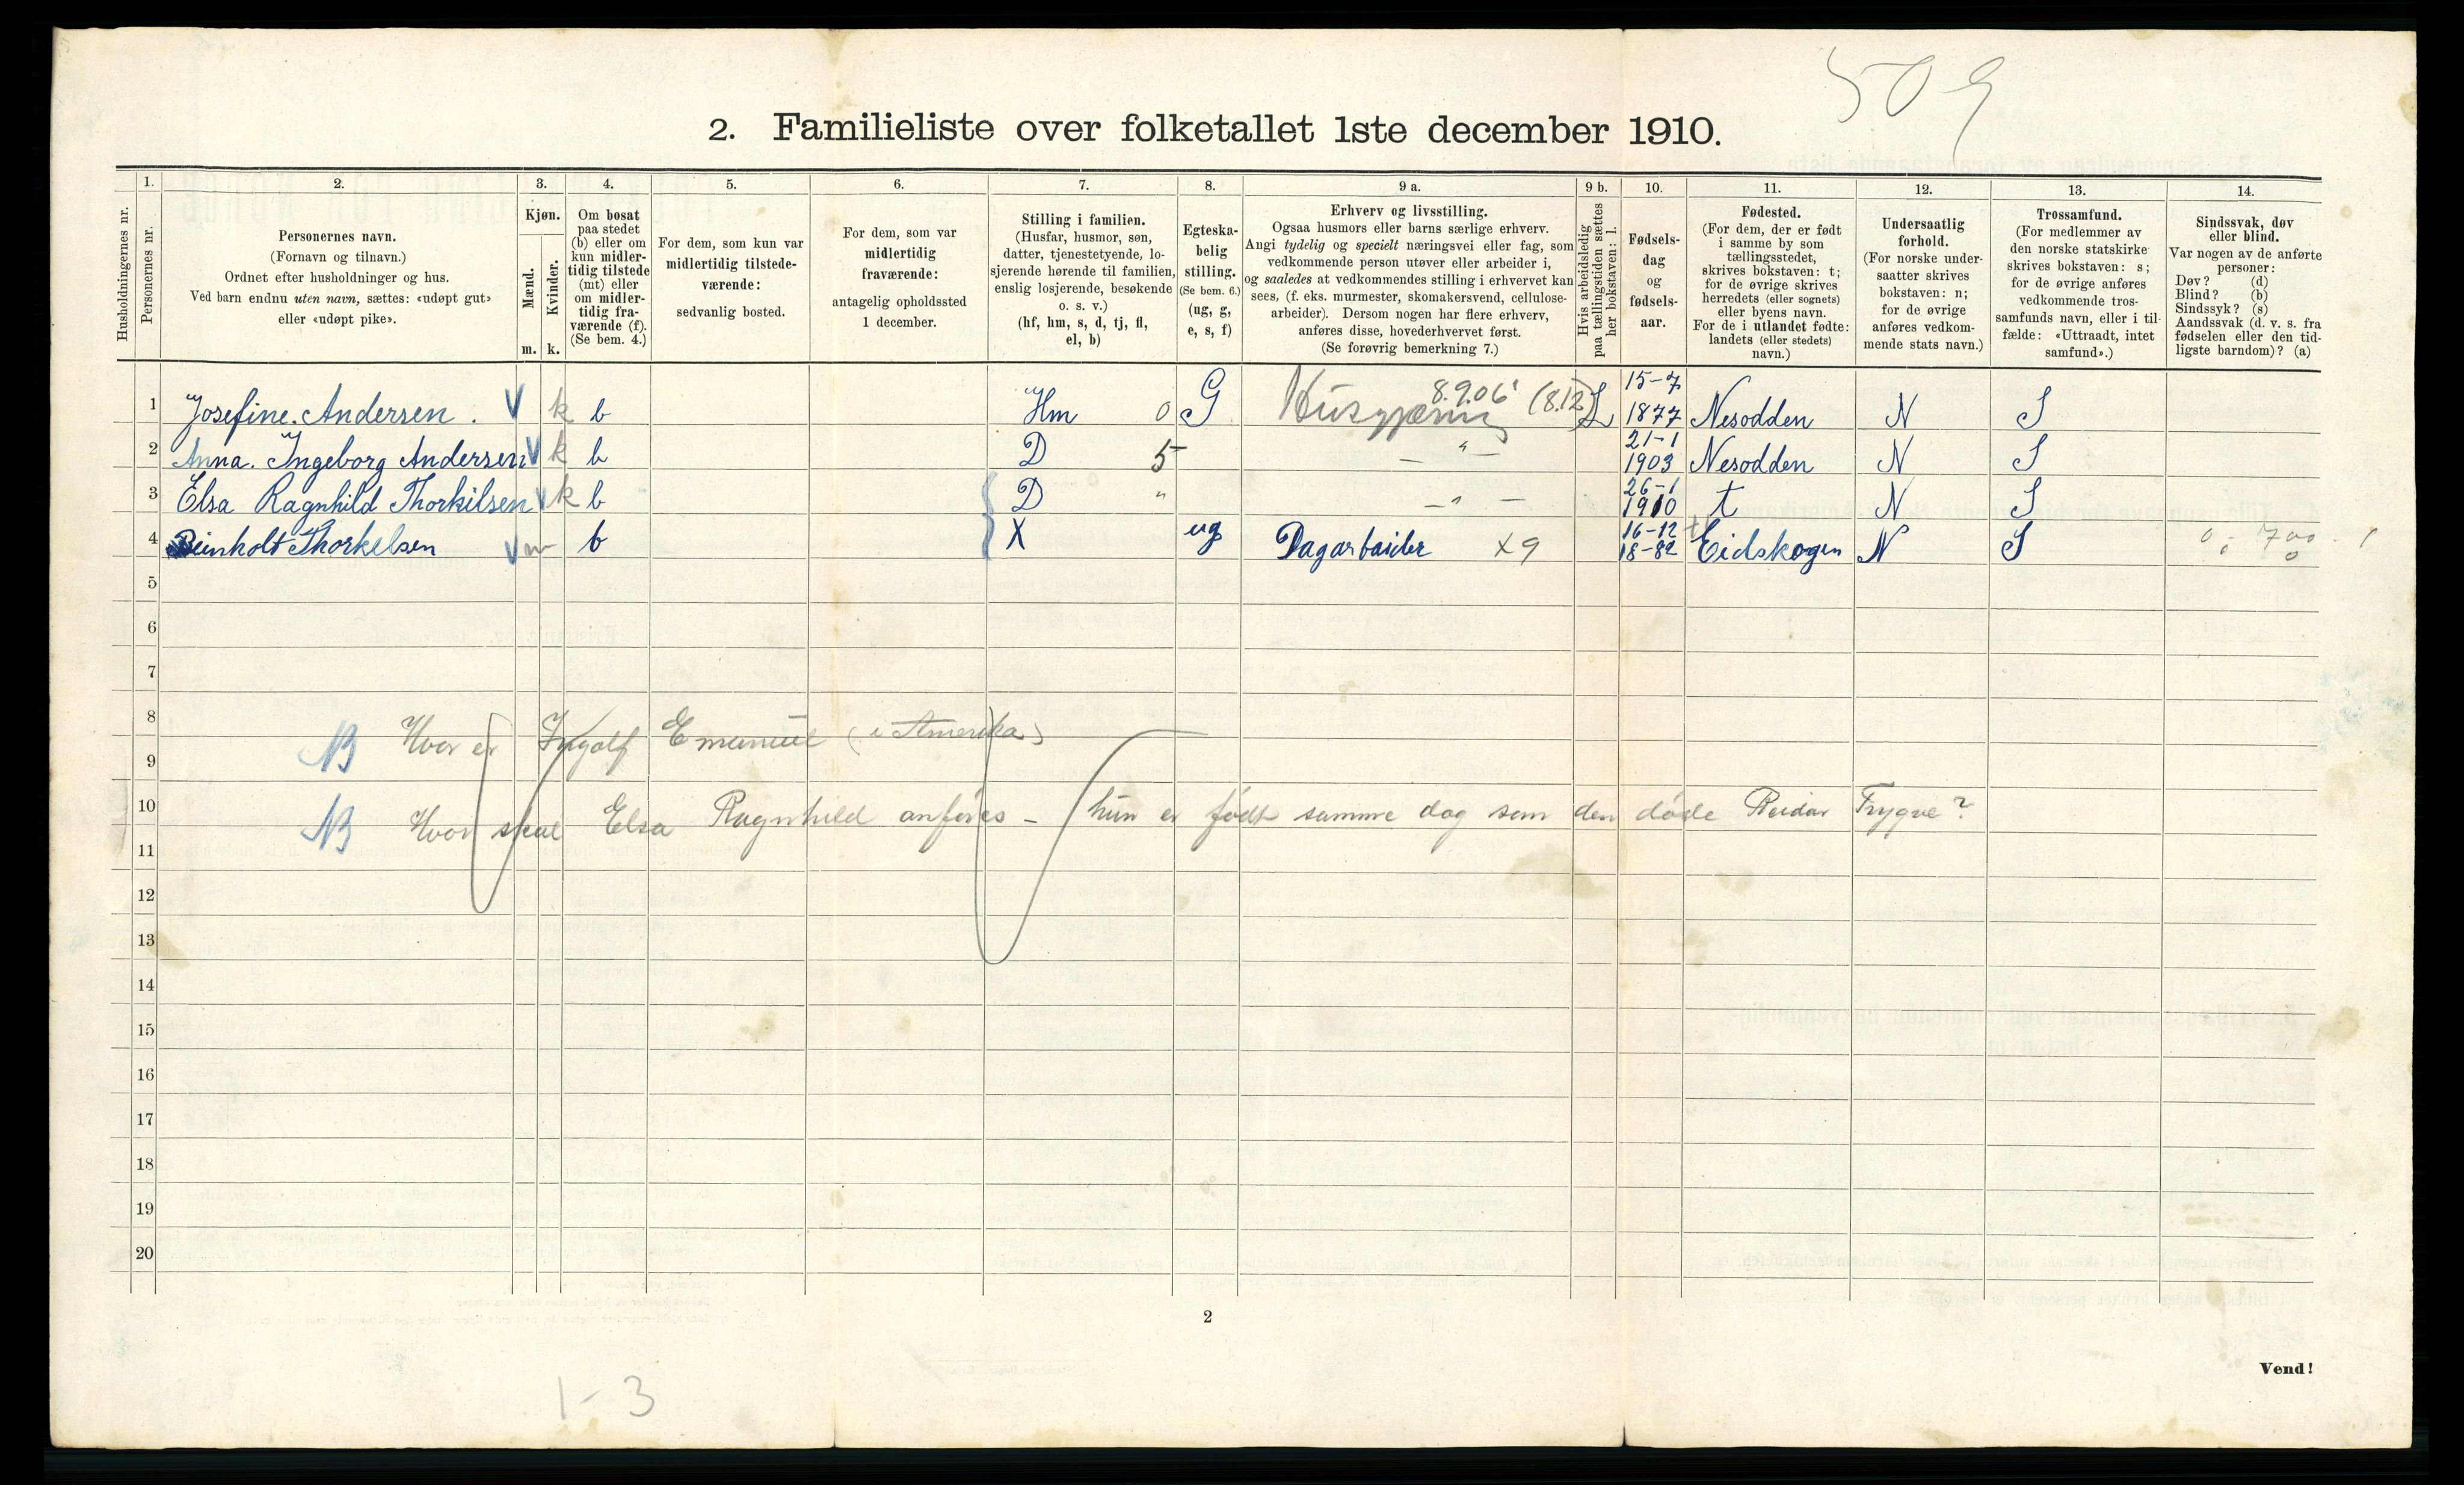 509
2. Familieliste over folketallet 1ste december 1910.
Husholdningernes nr.
1. Personernes nr.
2. Personernes navn.
(Fornavn og tilnavn.)
Ordnet efter husholdninger og hus.
Ved barn endnu uten navn, sættes: «udøpt gut»
eller «udøpt pike».
3. Kjøn.
Mænd. m.
Kvinder. k.
4. Om bosat
paa stedet
(b) eller om
kun midler-
tidig tilstede
(mt) eller
om midler-
tidig fra-
værende (f).
(Se bem. 4.)
5. For dem, som kun var
midlertidig tilstede-
værende:
sedvanlig bosted.
6. For dem, som var
midlertidig
fraværende:
antagelig opholdssted
1 december.
7. Stilling i familien.
(Husfar, husmor, søn,
datter, tjenestetyende, lo-
sjerende hørende til familien,
enslig losjerende, besøkende
o. s. v.)
(hf, hm, s, d, tj, fl,
el, b)
8. Egteska-
belig
stilling.
(Se bem. 6.)
(ug, g,
e, s, f)
9 a. Erhverv og livsstilling.
Ogsaa husmors eller barns særlige erhverv.
Angi tydelig og specielt næringsvei eller fag, som
vedkommende person utøver eller arbeider i,
og saaledes at vedkommendes stilling i erhvervet kan
sees, (f. eks. murmester, skomakersvend, cellulose-
arbeider). Dersom nogen har flere erhverv,
anføres disse, hovederhvervet først.
(Se forøvrig bemerkning 7.)
9 b. Hvis arbeidsledig
paa tællingstiden sættes
her bokstaven: l.
10. Fødsels-
dag
og
fødsels-
aar.
11. Fødested.
(For dem, der er født
i samme by som
tællingsstedet,
skrives bokstaven: t;
for de øvrige skrives
herredets (eller sognets)
eller byens navn.
For de i utlandet fødte:
landets (eller stedets)
navn.)
12. Undersaatlig
forhold.
(For norske under-
saatter skrives
bokstaven: n;
for de øvrige
anføres vedkom-
mende stats navn.)
13. Trossamfund.
(For medlemmer av
den norske statskirke
skrives bokstaven: s;
for de øvrige anføres
vedkommende tros-
samfunds navn, eller i til-
fælde: «Uttraadt, intet
samfund».)
14. Sindssvak, døv
eller blind.
Var nogen av de anførte
personer:
Døv? (d)
Blind? (b)
Sindssyk? (s)
Aandssvak (d. v. s. fra
fødselen eller den tid-
ligste barndom)? (a)
8.9.06 (8.12) 15-7
1 Josefine. Andersen. V k b Hm 0 G Husgjerning L 1877 Nesodden N S
21-1
2 Anna. Ingeborg Andersen V k b D 5 — " — 1903 Nesodden N S
26-1
3 Elsa Ragnhild Thorkilsen V k b D " — " — 1910 t N S
16-12
4 Reinholt Thorkelsen V m b X ug Dagarbaider x9 18-82 Eidskogen N S
5
6
7
8 NB Hvor er Ingolf Emanuel (i Amerika)
9
10 NB Hvor skal Elsa Ragnhild anføres - hun er født samme dag som den døde Reidar Trygve?
11
12
13
14
15
16
17
18
19
20
2
Vend!
1-3